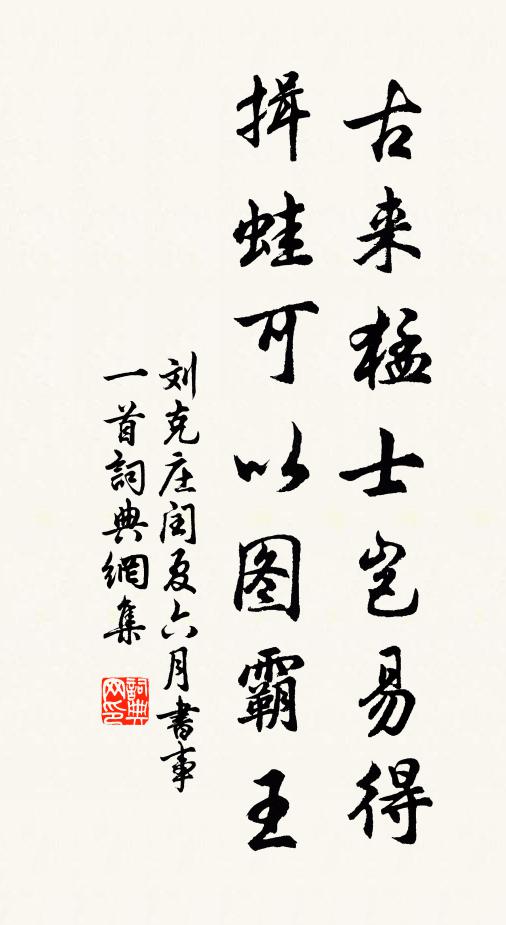 古来猛士岂易得
揖蛙可以图霸王
刘克庄闰夏六月书事
一首詞典網集
詞典网印